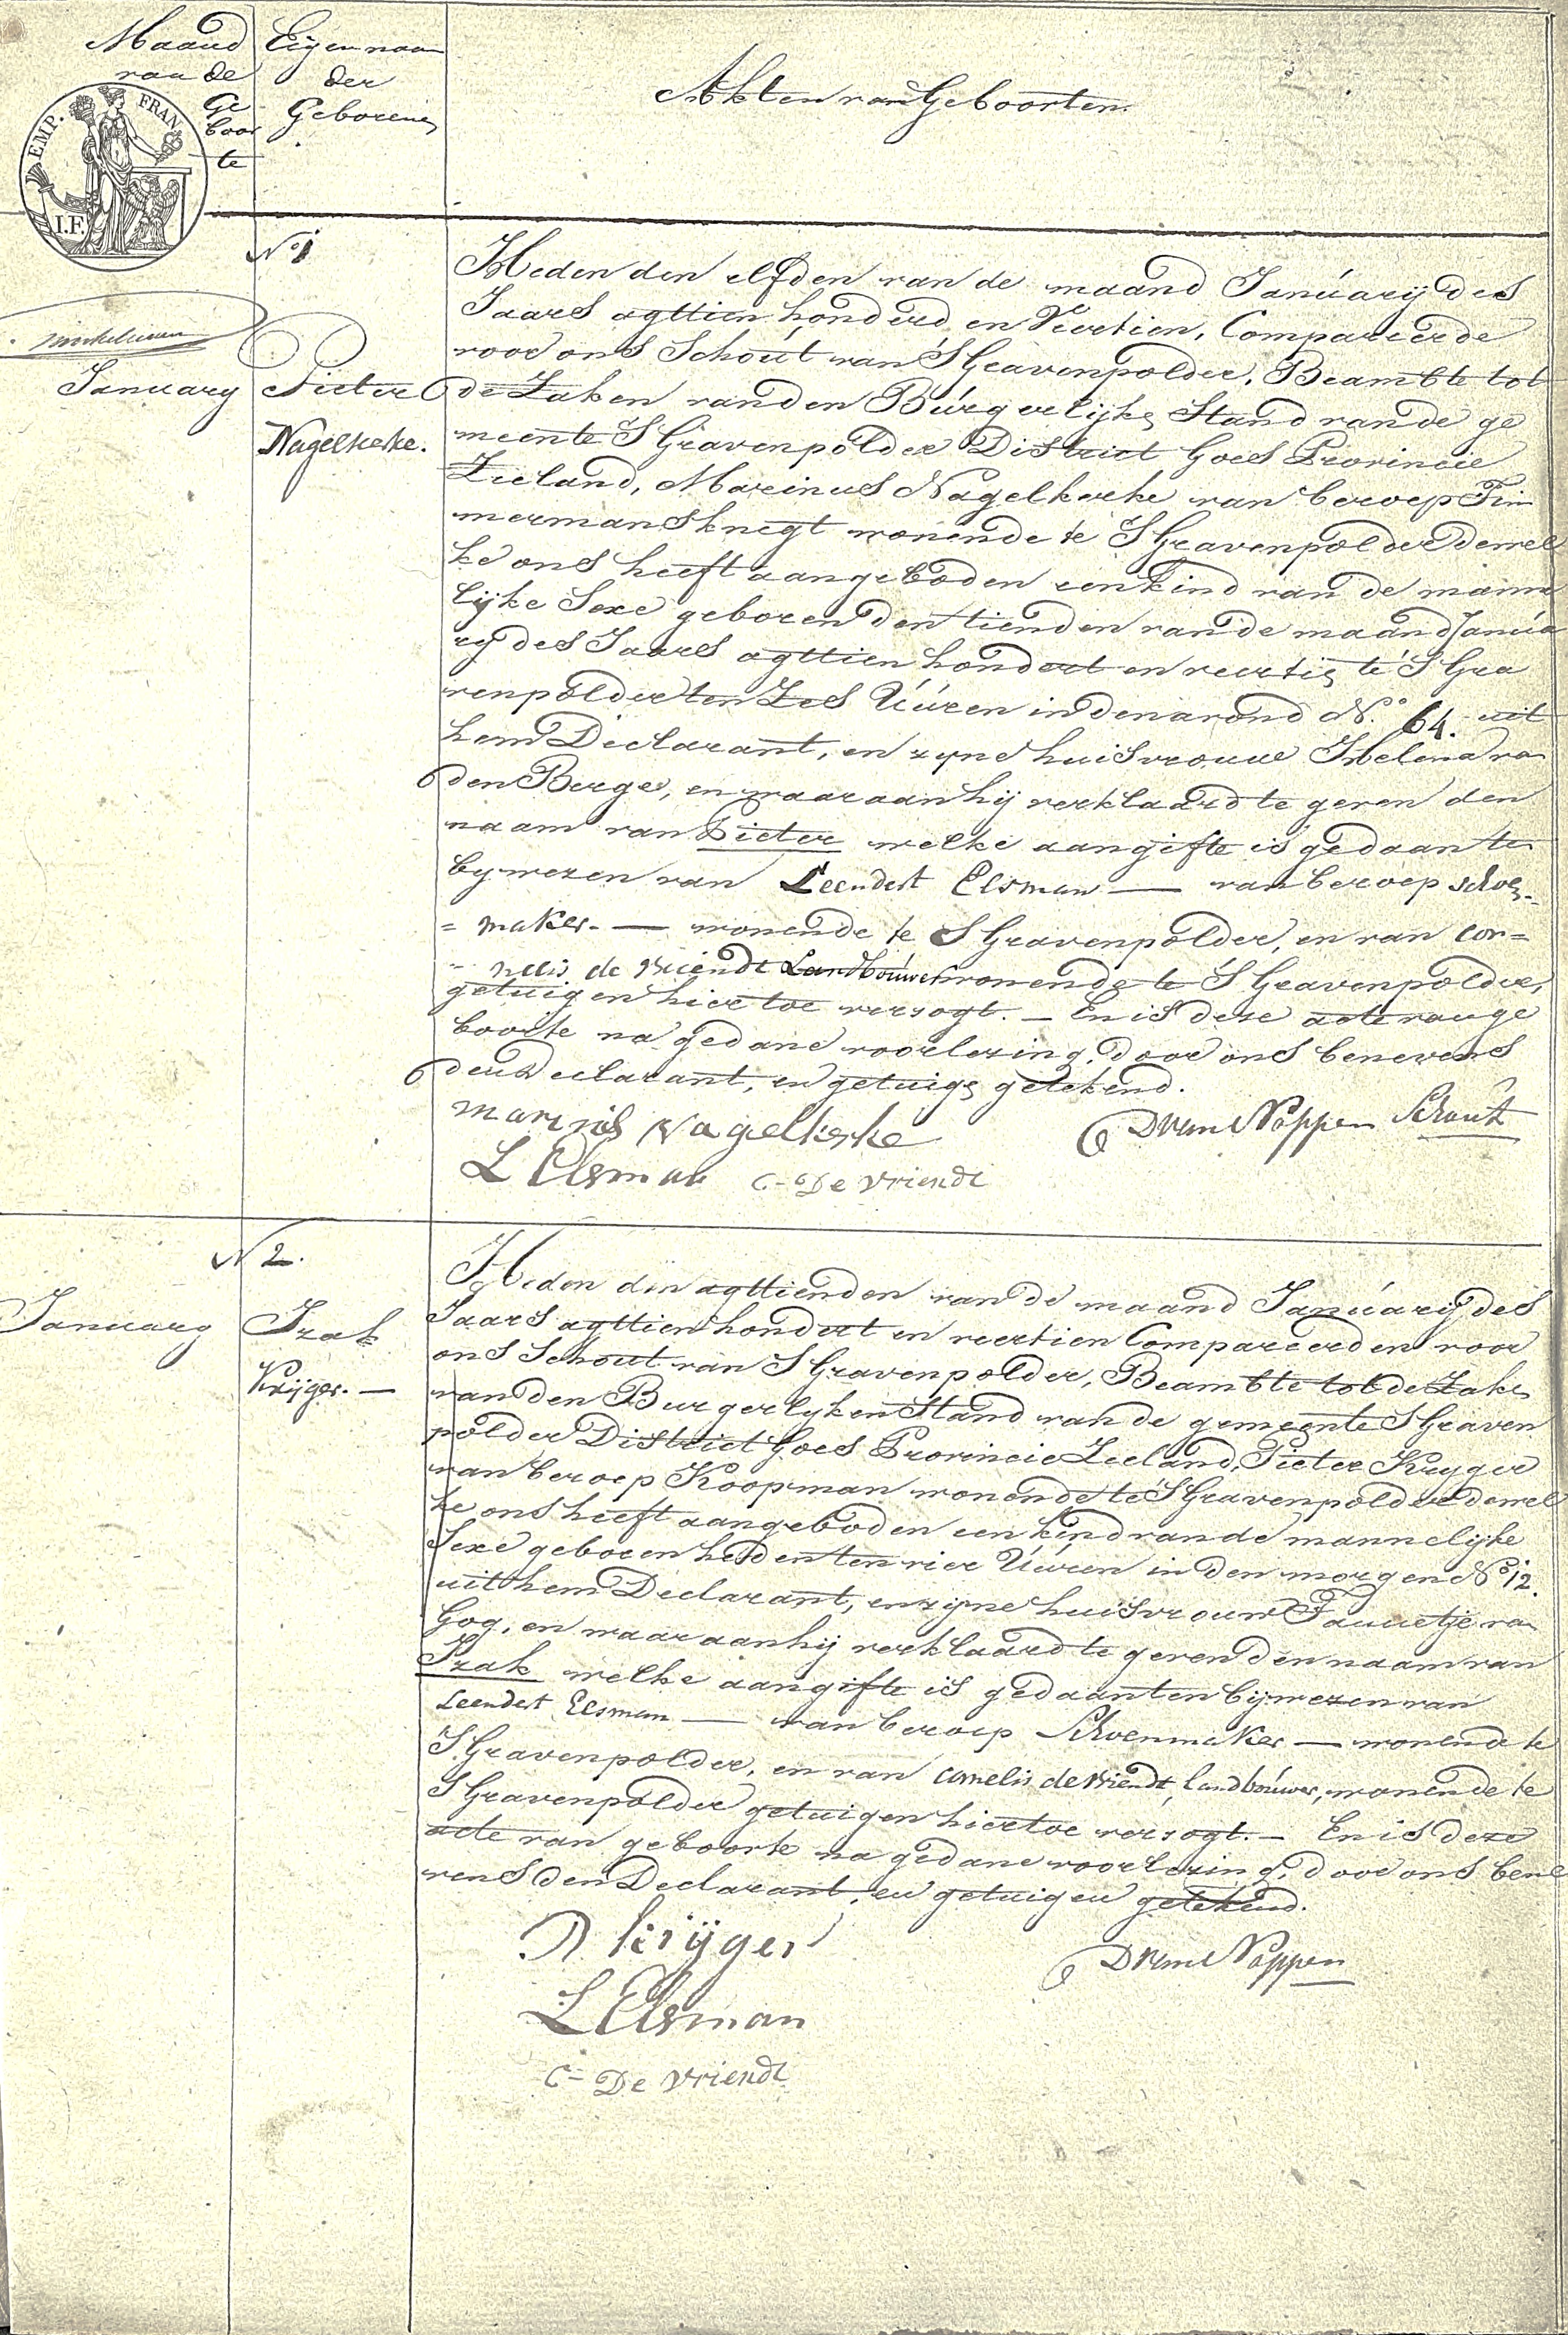 Maand
van de
Ge
boor
te
Eigen naam
der
Geborene
Akten van Geboorten.
EMP. FRAN.
I.F.
N° 1
January
Pieter
Nagelkerke.
Heden den elfden van de maand Januarij des
Jaars agttien honderd en Veertien, Compareerde
voor ons Schout van S Gravenpolder, Beambte tot
de Zaken van den Burgerlijke Stand van de ge
meente S Gravenpolder District Goes Provincie
Zeeland, Marinus Nagelkerke van beroep Tim
mermans knegt wonende te S Gravenpolder dewel
ke ons heeft aangeboden een kind van de manne
lijke Sexe geboren den tienden van de maand Janua
rij des Jaars agttien hondert en veertie te S Gra
venpolder ten Zes Uuren in den avond N.° 64. uit
hem Declarant, en zyne huisvrouwe Helena van
den Berge, en waar aan hij verklaard te geven den
naam van Pieter welke aangifte is gedaan ten
bywezen van Leendert Elsman — van beroep schoe-
= maker. — wonende te S Gravenpolder, en van Cor=
- nelis de Vriendt Landbouwer wonende te S Gravenpolder,
getuigen hier toe versogt. — En is dese acte van ge
boorte na gedane voorlezing, door ons benevens
den Declarant, en getuige getekend.
Marinus Nagelkerke
D van Noppen Schout
L Elsman C= De Vriendt
N 2.
January
Izak
Krijger. —
Heden den agttienden van de maand Januarij des
Jaars agttien hondert en veertien Compareerden voor
ons Schout van S Gravenpolder, Beambte tot de Zake
van den Burgerlyken Stand van de gemeente S Graven
polder District Goes Provincie Zeeland, Pieter Kryger
van beroep Koopman wonende te S Gravenpolder dewel
ke ons heeft aangeboden een kind van de mannelijke
Sexe geboren heden ten vier Uuren in den morgen N° 12.
uit hem Declarant, en zyne huisvrouw Pauwetje van
Gog, en waar aan hij verklaard te geven den naam van
Izak welke aangifte is gedaan ten bijwezen van
Leendert Elsman — van beroep Schoenmaker — wonende te
S Gravenpolder, en van Cornelis de Vriendt, Landbouwer, wonende te
S Gravenpolder getuigen hier toe versogt. — En is deze
acte van geboorte na gedane voorlezing, door ons bene
vens den Declarant, en getuigen getekend.
P krijger
D van Noppen
L Elsman
C= De Vriendt